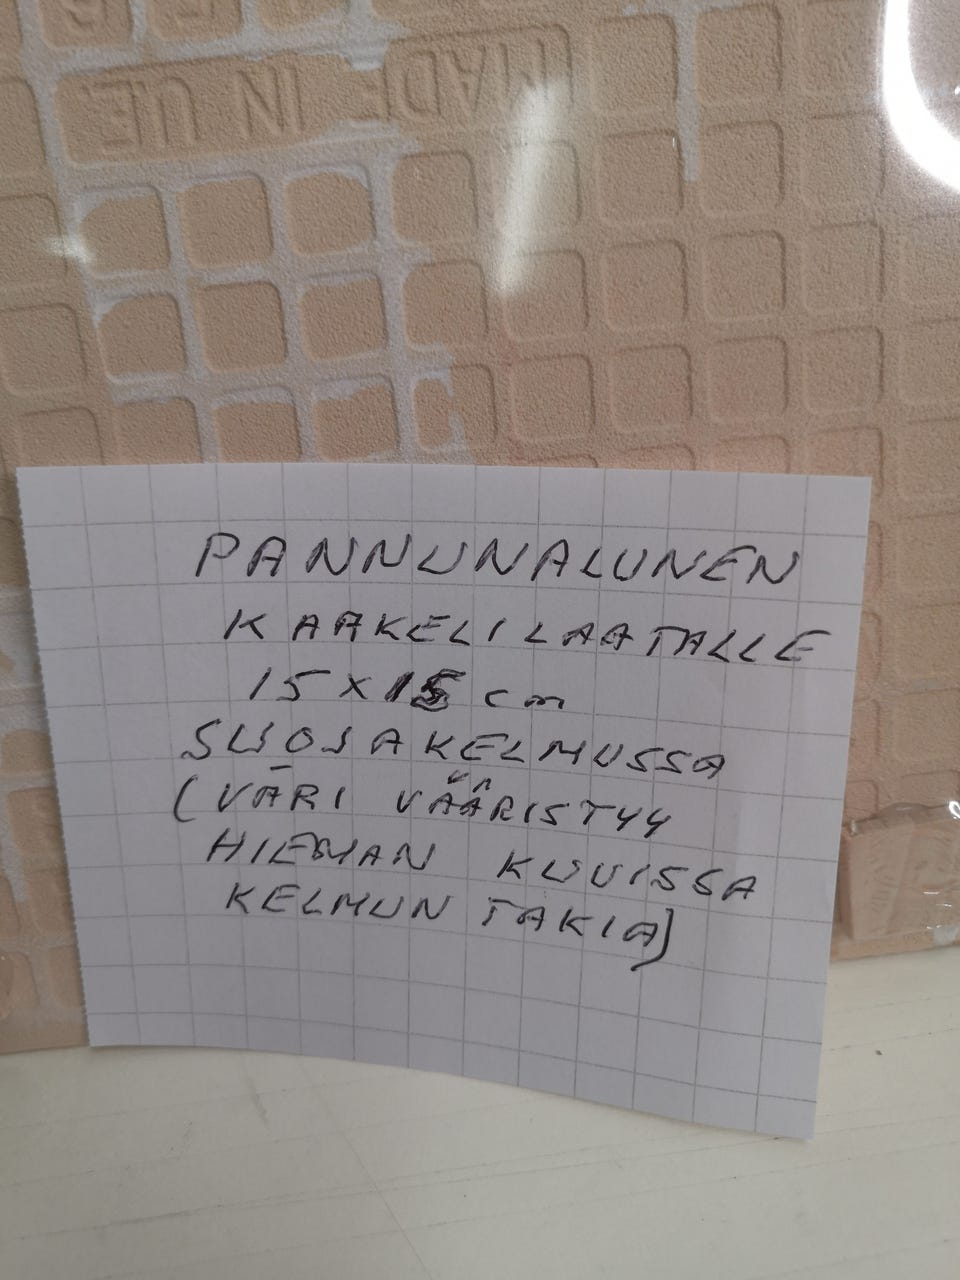 MADE IN U.E.
PANNUNALUNEN
KAAKELILAATALLE
15 x 15 cm
SUOJAKELMUSSA
(VÄRI VÄÄRISTYY
HIEMAN KUVISSA
KELMUN TAKIA)